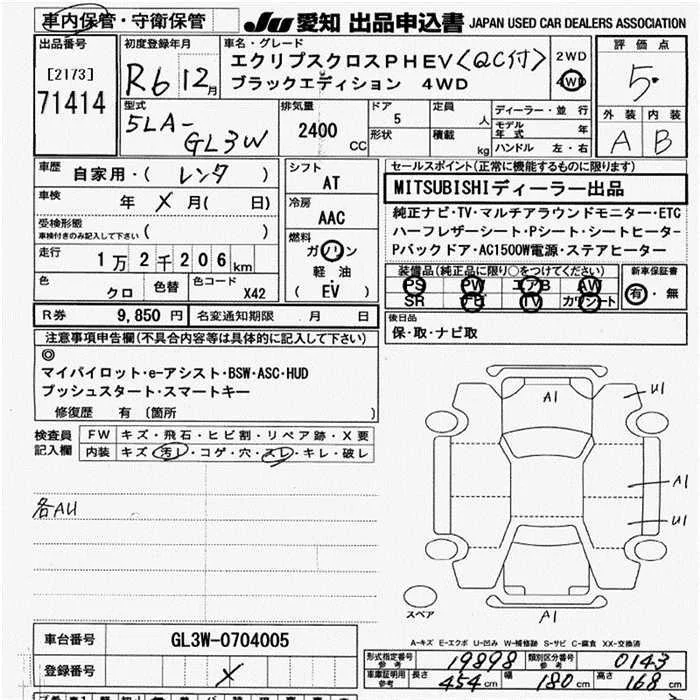 車内保管・守衛保管
JU 愛知 出品申込書 JAPAN USED CAR DEALERS ASSOCIATION
出品番号
[2173]
71414
初度登録年月
R6 12月
車名・グレード
エクリプスクロスPHEV〈QC付〉
ブラックエディション 4WD
2WD
4WD
評価点
5.
外装 内装
A B
型式
5LA-
GL3W
排気量
2400 CC
ドア
5
形状
定員
人
積載
kg
ディーラー・並行
モデル年式 年
ハンドル 左・右
車歴
自家用・( レンタ )
車検
年 メ 月( 日)
受検形態
車検付きのみ記入して下さい ( )
走行
1万2千206km
色
クロ
色替
色コード
X42
シフト
AT
冷房
AAC
燃料
ガソリン
軽油
( EV )
セールスポイント(正常に機能するものに限ります)
MITSUBISHIディーラー出品
純正ナビ・TV・マルチアラウンドモニター・ETC
ハーフレザーシート・Pシート・シートヒーター
Pバックドア・AC1500W電源・ステアヒーター
装備品(純正品に限り〇をつけてください)
PS PW エアB AW
SR ナビ TV カワシート
新車保証書
有・無
R券 9,850円 名変通知期限 月 日
後日品
保・取・ナビ取
注意事項申告欄(不具合内容等は具体的に記入して下さい)
◎
マイパイロット・e-アシスト・BSW・ASC・HUD
プッシュスタート・スマートキー
修復歴 有 〔箇所 〕
検査員記入欄
FW キズ・飛石・ヒビ割・リペア跡・X要
内装 キズ・汚レ・コゲ・穴・スレ・キレ・破レ
各AU
A1
U1
A1
U1
A1
スペア
A-キズ E-エクボ U-凹み W-補修跡 S-サビ C-腐食 XX-交換済
車台番号 GL3W-0704005
登録番号 メ
形式指定番号参考 19898 類別区分番号参考 0143
車庫証明用参考 長さ 454cm 幅 180cm 高さ 168cm